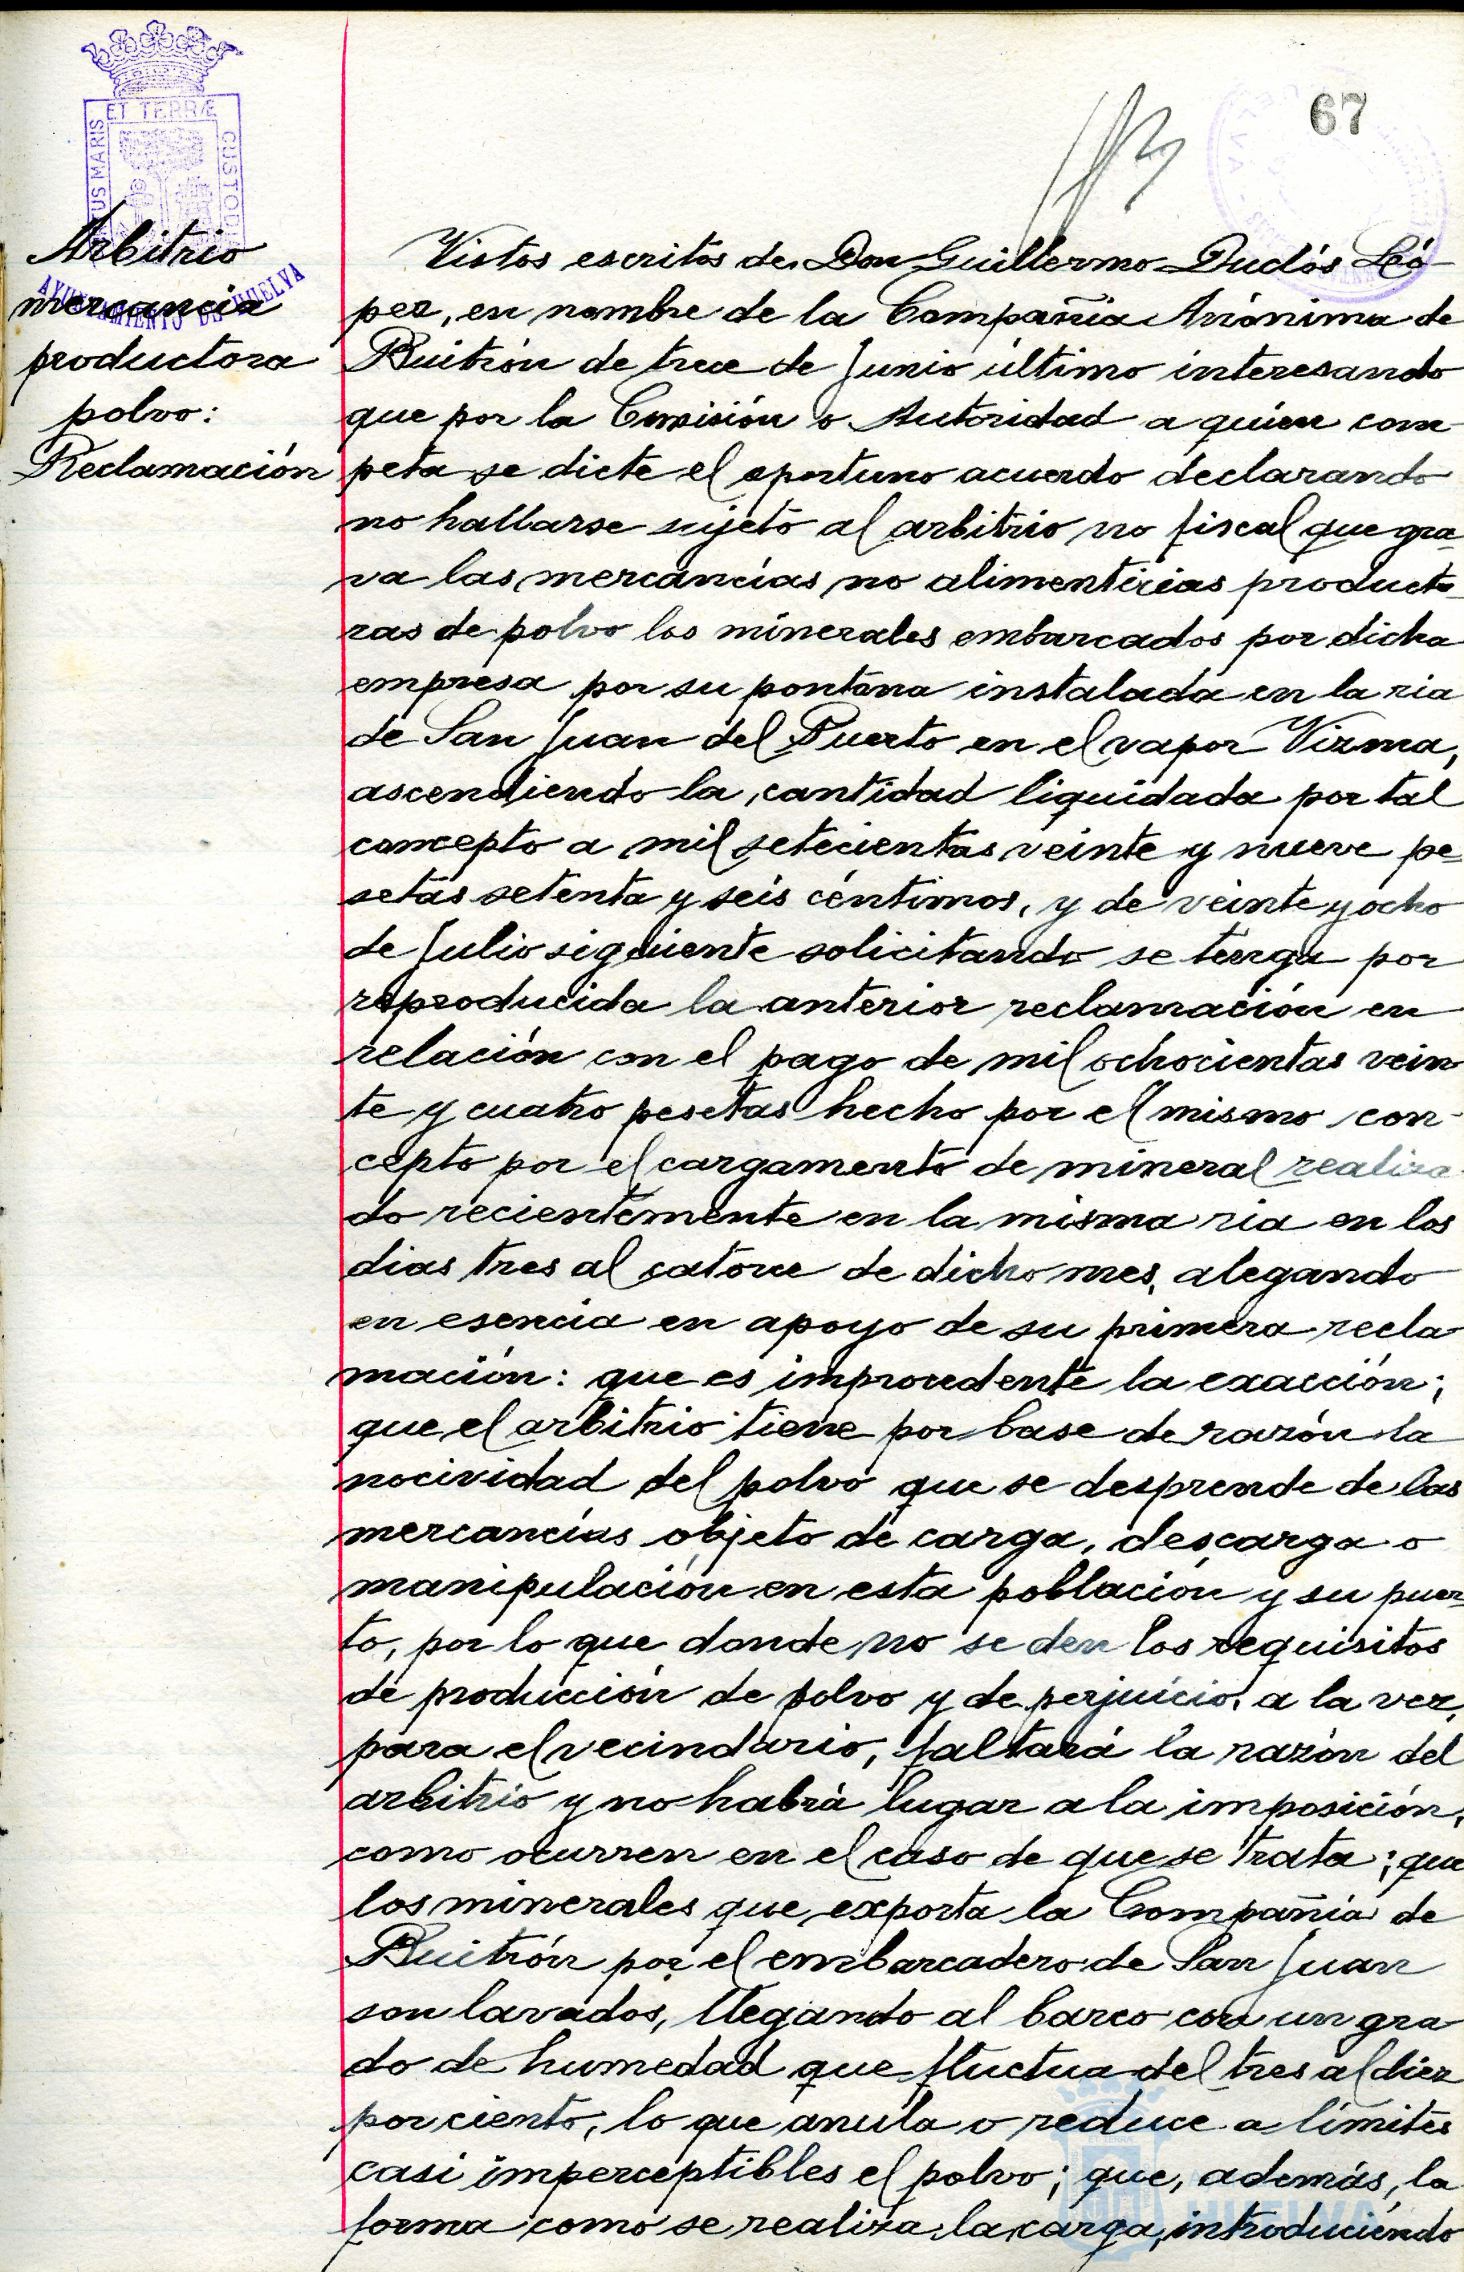 67
ET TERRÆ
CUSTOD
US MARIS
AYUNTAMIENTO DE HUELVA
Arbitrio
mercancia
productora
polvo:
Reclamación
Vistos escritos de Don Guillermo Duclós Ló-
pez, en nombre de la Compañia Anónima de
Buitrón de trece de Junio último interesando
que por la Comisión o Autoridad a quien com-
peta se dicte el oportuno acuerdo declarando
no hallarse sujeto al arbitrio no fiscal que gra-
va las mercancías no alimenticias producto-
ras de polvo los minerales embarcados por dicha
empresa por su pontona instalada en la ria
de San Juan del Puerto en el vapor Virma,
ascendiendo la cantidad liquidada por tal
concepto a mil setecientas veinte y nueve pe-
setas setenta y seis céntimos, y de veinte y ocho
de Julio siguiente solicitando se tenga por
reproducida la anterior reclamación en
relación con el pago de mil ochocientas vein
te y cuatro pesetas hecho por el mismo con-
cepto por el cargamento de mineral realiza-
do recientemente en la misma ria en los
dias tres al catorce de dicho mes, alegando
en esencia en apoyo de su primera recla
mación: que es improcedente la exacción;
que el arbitrio tiene por base de razón la
nocividad del polvo que se desprende de las
mercancías objeto de carga, descarga o
manipulación en esta población y su puer-
to, por lo que donde no se den los requisitos
de producción de polvo y de perjuicio, a la vez,
para el vecindario, faltará la razón del
arbitrio y no habrá lugar a la imposición,
como ocurren en el caso de que se trata; que
los minerales que exporta la Compañia de
Buitrón por el embarcadero de San Juan
son lavados, llegando al barco con un gra
do de humedad que fluctua del tres al diez
por ciento, lo que anula o reduce a límites
casi imperceptibles el polvo; que, además, la
forma como se realiza la carga, introduciendo
HUELVA